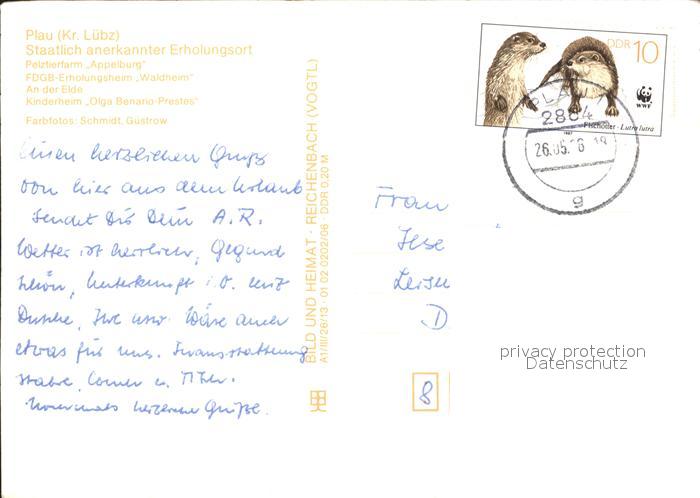 Plau (Kr. Lübz)
Staatlich anerkannter Erholungsort
Pelztierfarm „Appelburg"
FDGB-Erholungsheim „Waldheim"
An der Elde
Kinderheim „Olga Benario-Prestes"
Farbfotos: Schmidt, Güstrow
Einen herzlichen Gruß
von hier aus dem Urlaub
sendet Dir Dein A.R.
Wetter ist herrlich, Gegend
schön, Unterkunft i.O. mit
Dusche, usw. Wäre auch
etwas für uns.
u.
Nochmals herzliche Grüße.
BILD UND HEIMAT · REICHENBACH (VOGTL)
A1/III/26/13 · 01 02 0202/06 · DDR 0,20 M
DDR 10
WWF
Fischotter · Lutra lutra
PLAU
2864
26.05.
g
Frau
Ilse
D
8
privacy protection
Datenschutz